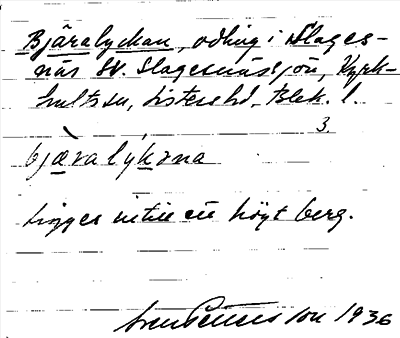 Bjäralyckan, odling i Slages-
näs St. Slagesnässjön, Kyrk-
hults sn, Listers hd, Blek. l.
3.
bjæralykəna
Ligger intill ett högt berg.
Sven Petersson 1936